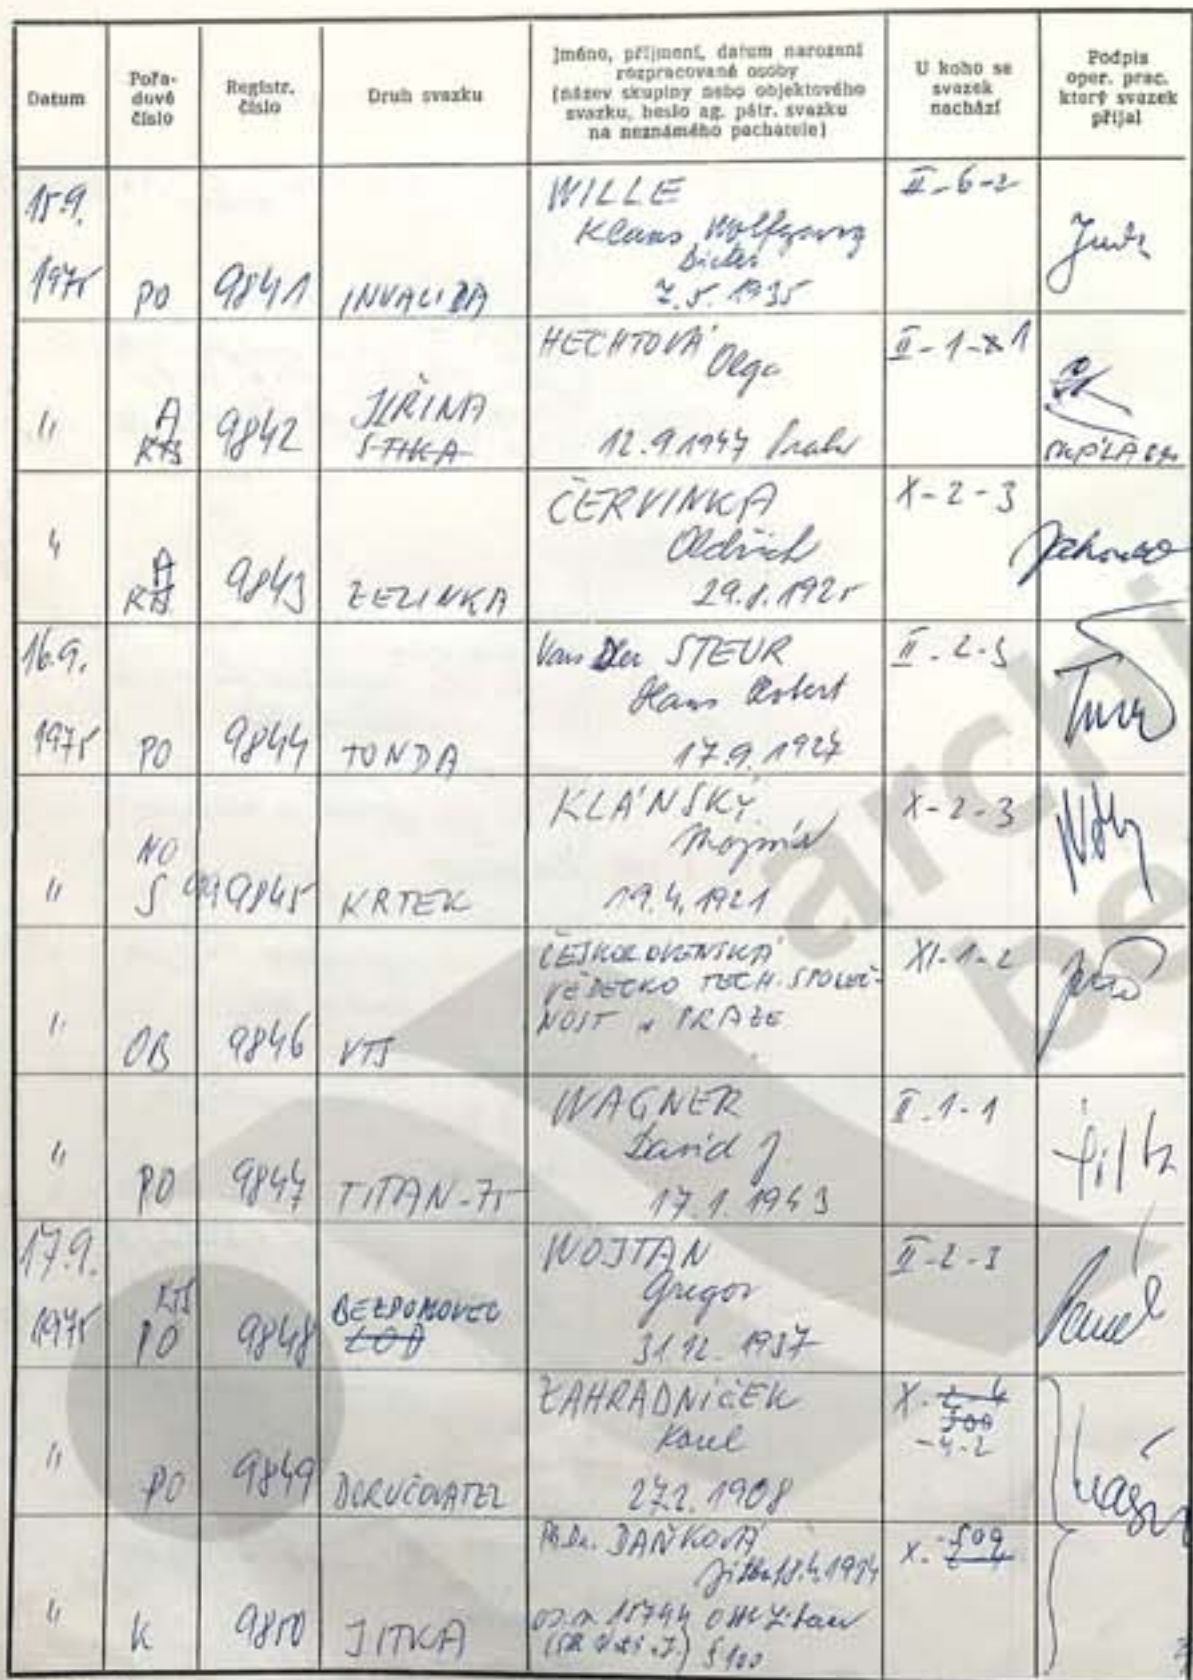 Datum
Pořa-
dové
číslo
Registr.
číslo
Druh svazku
Jméno, příjmení, datum narození
rozpracované osoby
(název skupiny nebo objektového
svazku, heslo ag. pátr. svazku
na neznámého pachatele)
U koho se
svazek
nachází
Podpis
oper. prac.
který svazek
přijal
15.9.
1975
PO
9841
INVALIDA
WILLE
Klaus Wolfgang
Dieter
7.5.1935
II-6-2
"
A
KTS
9842
JIŘINA
HECHTOVÁ Olga
12.9.1947 Praha
II-1-1
"
A
KTS
9843
ZELINKA
ČERVINKA
Oldřich
29.8.1925
X-2-3
16.9.
1975
PO
9844
TONDA
Van Der STEUR
Hans Robert
17.9.1927
II-2-3
"
NO
S
9845
KRTEK
KLÁNSKÝ
Mojmír
19.4.1921
X-2-3
"
OB
9846
VTS
ČESKOSLOVENSKÁ
VĚDECKO TECH. SPOLEČ-
NOST v PRAZE
XI-1-2
"
PO
9847
TITAN-75
WAGNER
David J.
17.1.1943
II-1-1
17.9.
1975
KTS
PO
9848
BEZDOMOVEC
LOD
WOJTAN
Gregor
31.12.1937
II-2-3
"
PO
9849
DORUČOVATEL
ZAHRADNÍČEK
Karel
27.2.1908
X-
-4-2
"
K
9850
JITKA
PhDr. DAŇKOVÁ
Jitka
X.-509
archi
be